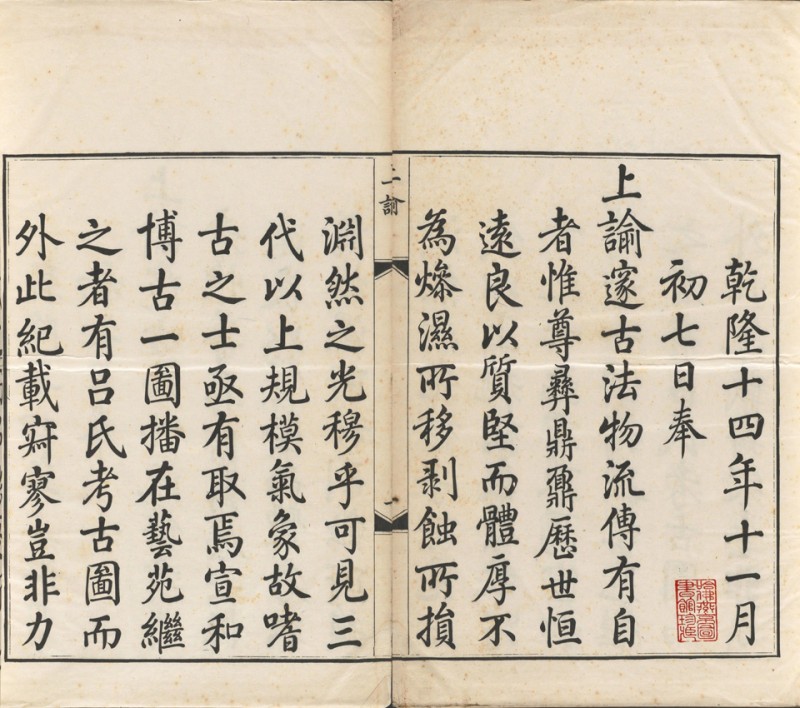 乾隆十四年十一月
初七日奉
上諭邃古法物流傳有自
者惟尊彞鼎鼐歷世恒
遠良以質堅而體厚不
為燥濕所移剥蝕所損
上諭
一
淵然之光穆乎可見三
代以上規模氣象故嗜
古之士亟有取焉宣和
博古一圖播在藝苑繼
之者有吕氏考古圖而
外此紀載寂寥豈非力
哈佛燕京圖
書館珍藏